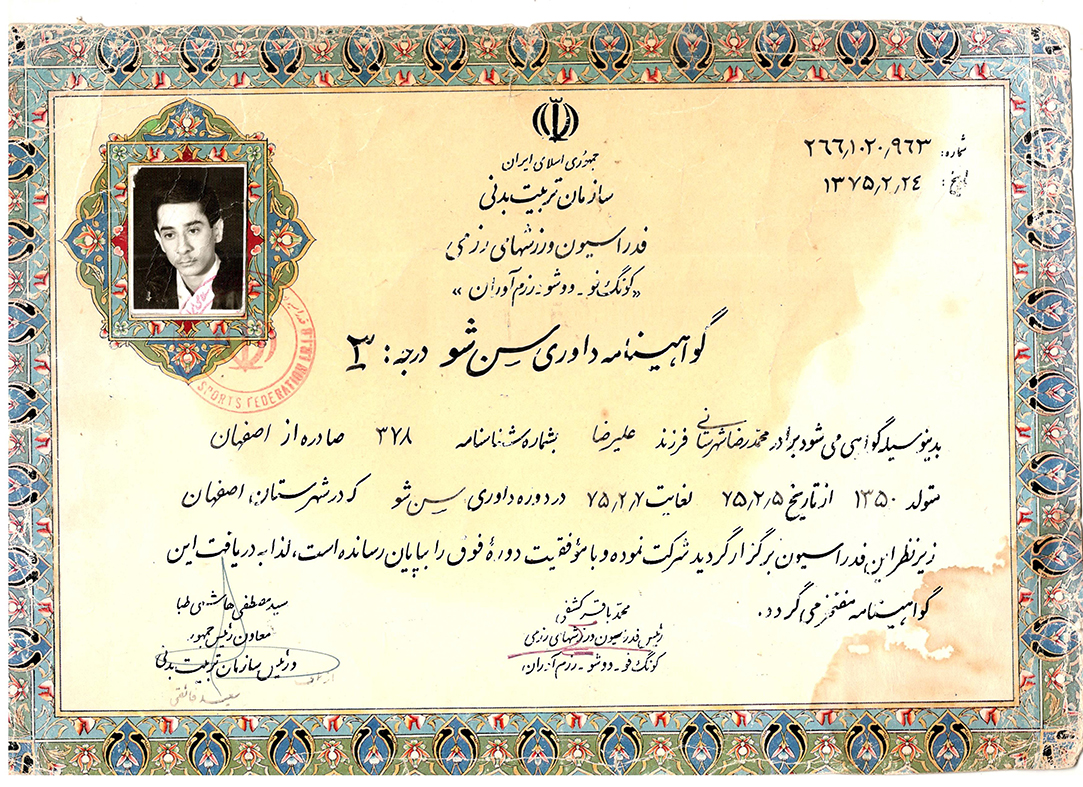 شماره: ۲۶۶٫۱۰۲۰٫۹۶۳
تاریخ: ۱۳۷۵٫۲٫۲۴
جمهوری اسلامی ایران
سازمان تربیت بدنی
فدراسیون ورزشهای رزمی
«کونگ فو - ووشو - رزم آوران»
گواهینامه داوری سن شو درجه: ۳
SPORTS FEDERATION
بدینوسیله گواهی می شود برادر محمدرضا شهرستانی فرزند علیرضا بشماره شناسنامه ۳۷۸ صادره از اصفهان
متولد ۱۳۵۰ از تاریخ ۷۵٫۲٫۵ لغایت ۷۵٫۲٫۷ در دوره داوری سن شو که در شهرستان اصفهان
زیر نظر این فدراسیون برگزار گردید شرکت نموده و با موفقیت دورهٔ فوق را بپایان رسانده است، لذا به دریافت این
گواهینامه مفتخر می گردد.
محمد باقر کشفی
رئیس فدراسیون ورزشهای رزمی
کونگ فو - ووشو - رزم آوران
سید مصطفی هاشمی طبا
معاون رئیس جمهور
و رئیس سازمان تربیت بدنی